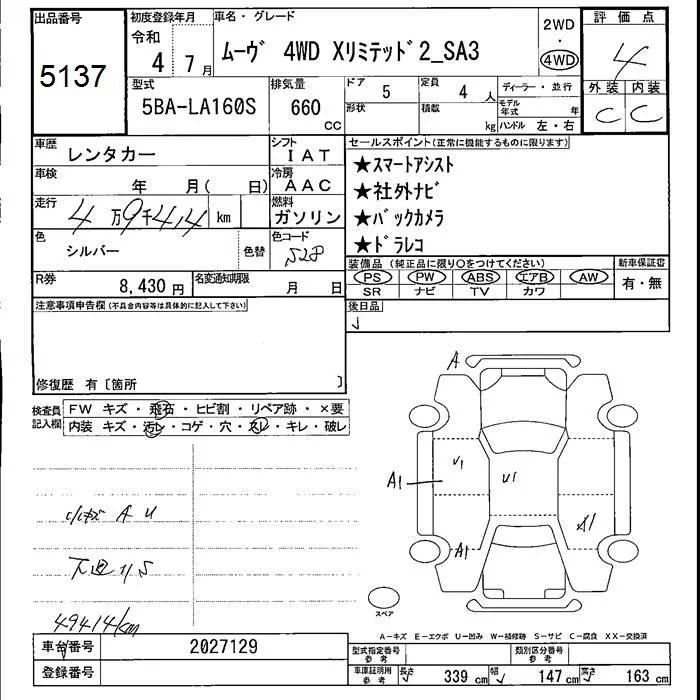 出品番号
5137
初度登録年月
令和
4 7月
車名・グレード
ムーヴ 4WD Xリミテッド2_SA3
2WD
・
4WD
評価点
4
外装 内装
C C
型式
5BA-LA160S
排気量
660
CC
ドア
5
定員
4人
ディーラー・並行
形状
積載
kg
モデル年式 年
ハンドル 左・右
車歴
レンタカー
シフト
IAT
車検
年 月( 日)
冷房
AAC
走行
4万9千414 km
燃料
ガソリン
色
シルバー
色替
色コード
S28
R券
8,430円
名変通知期限
月 日
セールスポイント(正常に機能するものに限ります)
★スマートアシスト
★社外ナビ
★バックカメラ
★ドラレコ
装備品(純正品に限り○をつけてください)
PS PW ABS エアB AW
SR ナビ TV カワ
新車保証書
有・無
後日品
注意事項申告欄(不具合内容等は具体的に記入して下さい)
修復歴 有〔箇所 〕
検査員記入欄
FW キズ・飛石・ヒビ割・リペア跡・×要
内装 キズ・汚レ・コゲ・穴・スレ・キレ・破レ
小キズ A U
下廻りS
49414km
A
A1
U1
U1
A1
A1
スペア
A-キズ E-エクボ U-凹み W-補修跡 S-サビ C-腐食 XX-交換済
車台番号
2027129
登録番号
型式指定番号
参考
類別区分番号
参考
車庫証明用
参考
長さ 339 cm
幅 147 cm
高さ 163 cm